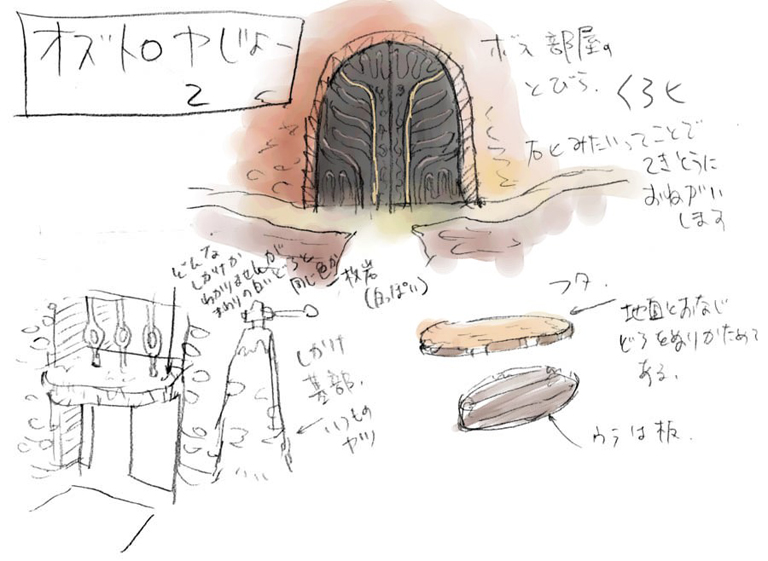 オズトロヤじょー
2
ボス部屋の
とびら. くろと
石とみたいってことで
てきとうに
おねがい
します
どんな
しかけか
わかりませんが
まわりの白いどろと
同じ色か
枝岩
(白っぽい)
しかけ
基部.
いつもの
ヤツ
フタ.
地面とおなじ
どろをぬりかためて
ある.
ウラは板.